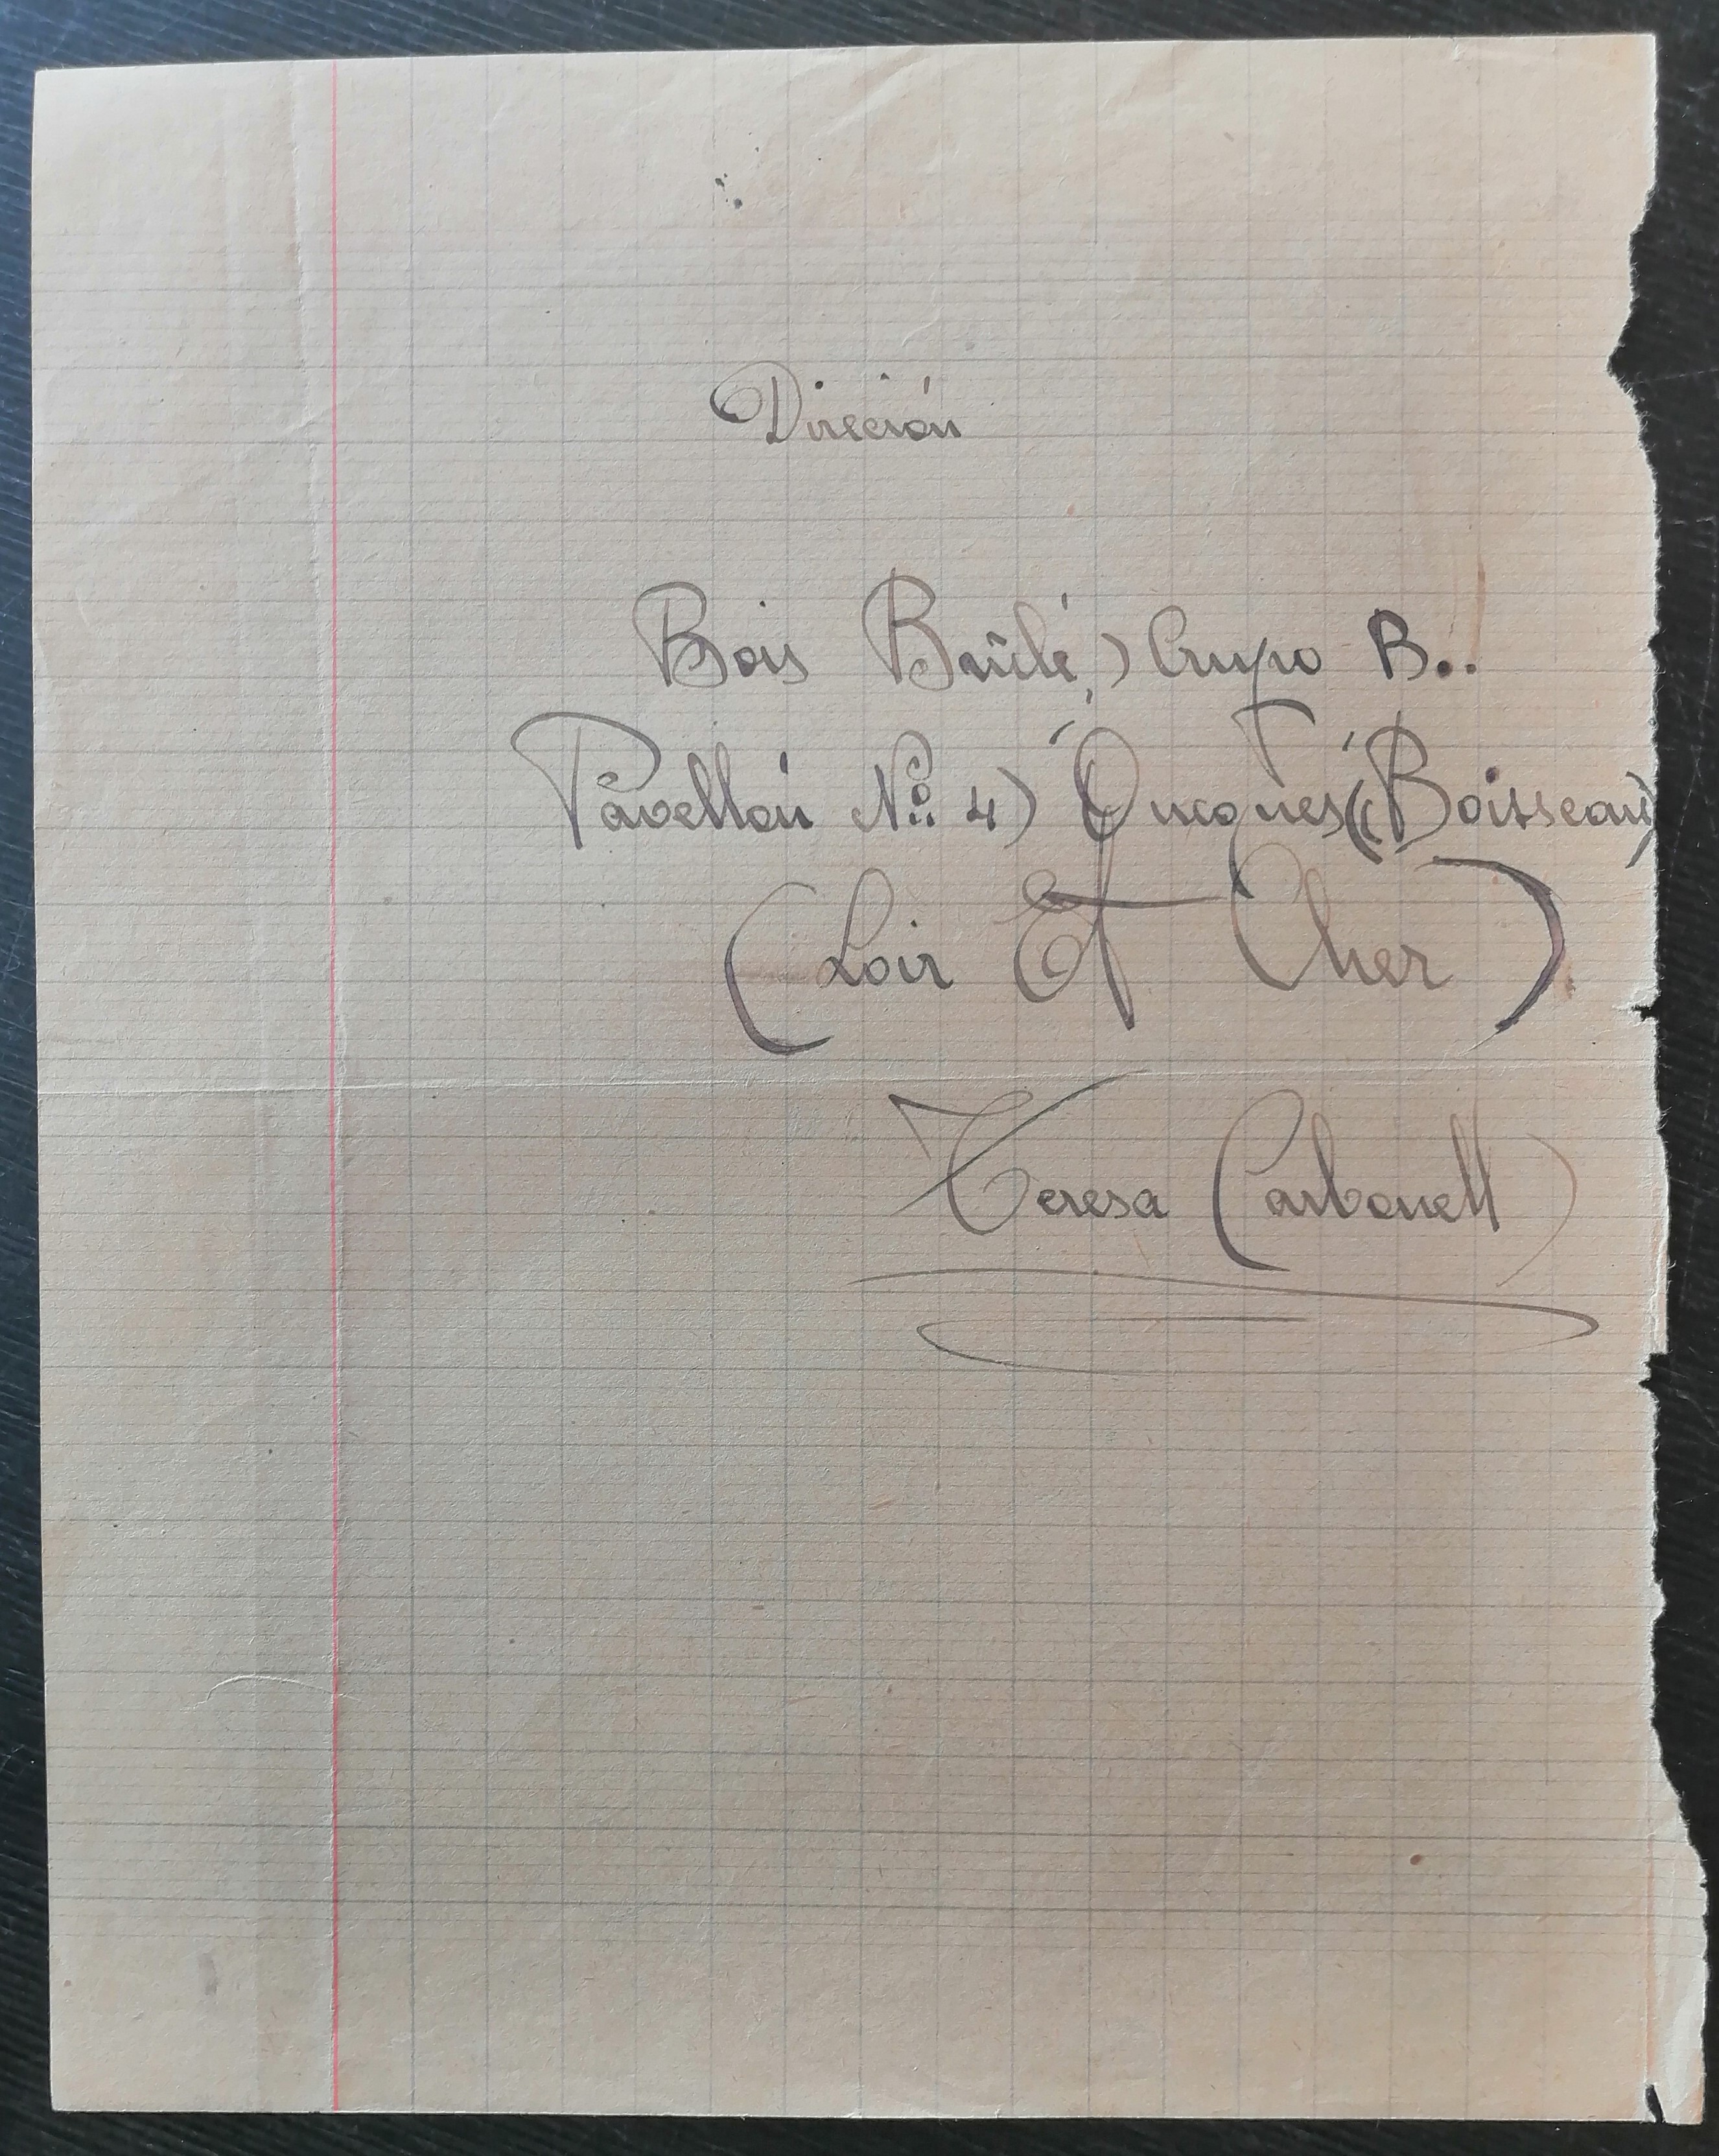 Direción
Bois Baûlé,) Grupo B..
Pavellón No. 4) Oucques (Boisseau)
(Loir Et Cher)
Teresa Carbonell